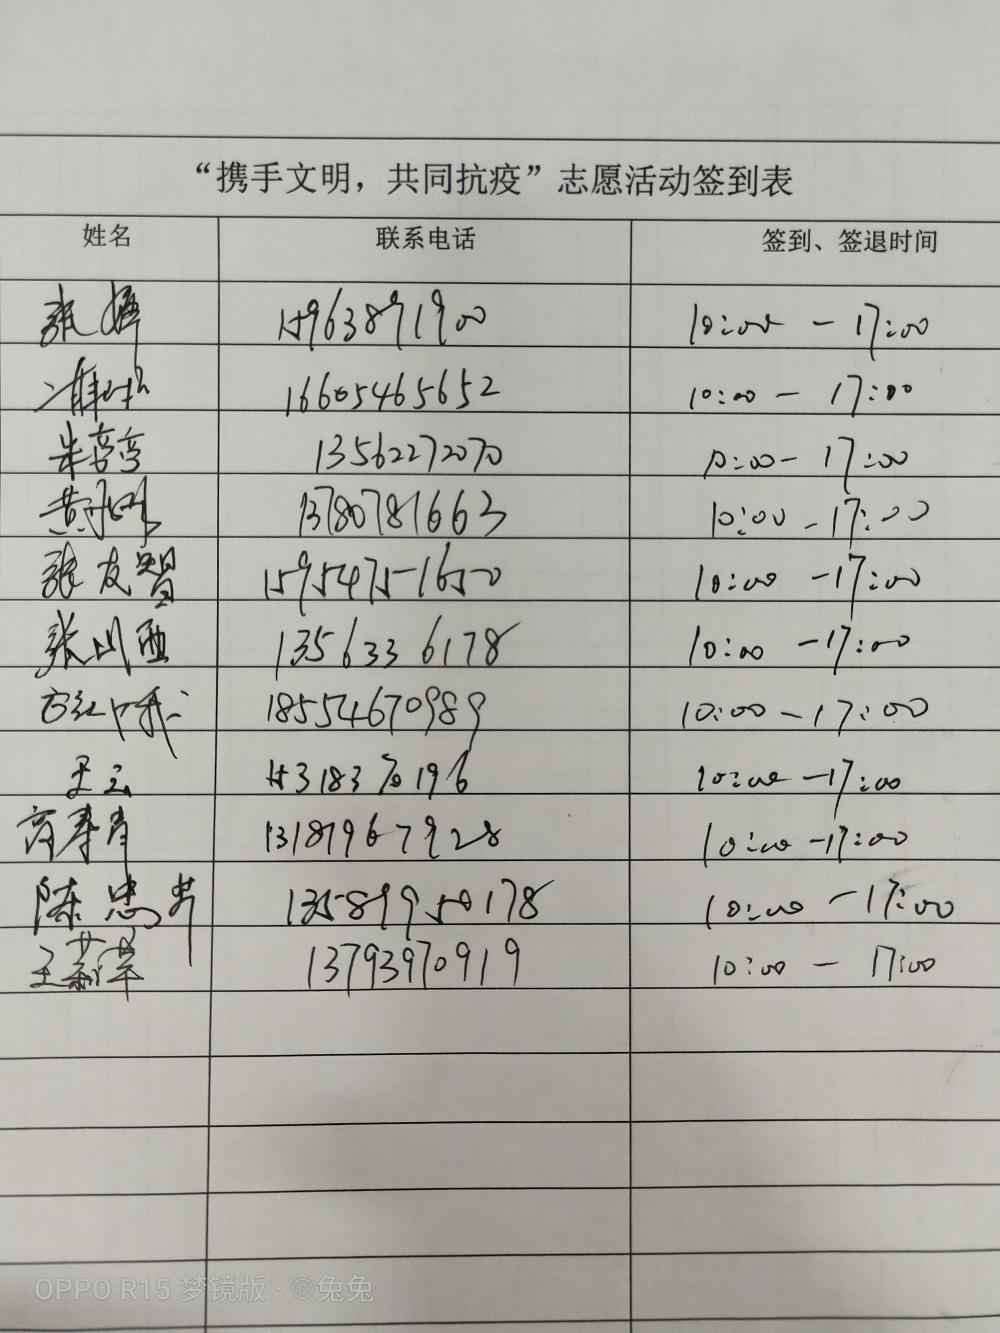 “携手文明，共同抗疫”志愿活动签到表
姓名 联系电话 签到、签退时间
张婷 15963891900 10:00 - 17:00
16605465652 10:00 - 17:00
朱 13562272070 10:00 - 17:00
黄 13780781663 10:00 - 17:00
张友智 15954751650 10:00 - 17:00
张 13563336178 10:00 - 17:00
18554670989 10:00 - 17:00
王云 10:00 - 17:00
13187967928 10:00 - 17:00
陈忠芳 13589950178 10:00 - 17:00
王萍 13793970919 10:00 - 17:00
OPPO R15 梦镜版 · ©兔兔